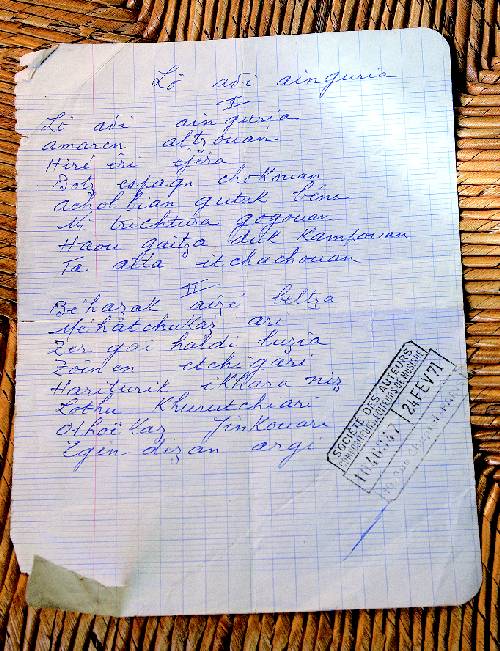 Lo adi ainguria
I
Lo adi ainguria
amaren altzouan
Hiri eri
Bolz espagn chokouan
achollian gutuk biac
Mi trichtura gogouan
Haou gaitza dik Kampouan
Ta atta itchachouan
II
Beharak aizi beltza
Mehatchukaz ari
Zer gai haldi luzia
Zoinen etchigari
Harifurit ikhara niz
Lothu Khurutchiari
Othoïkaz Jinkouari
Egin dezan argi
SOCIÉTÉ DES AUTEURS
12 FEV 71